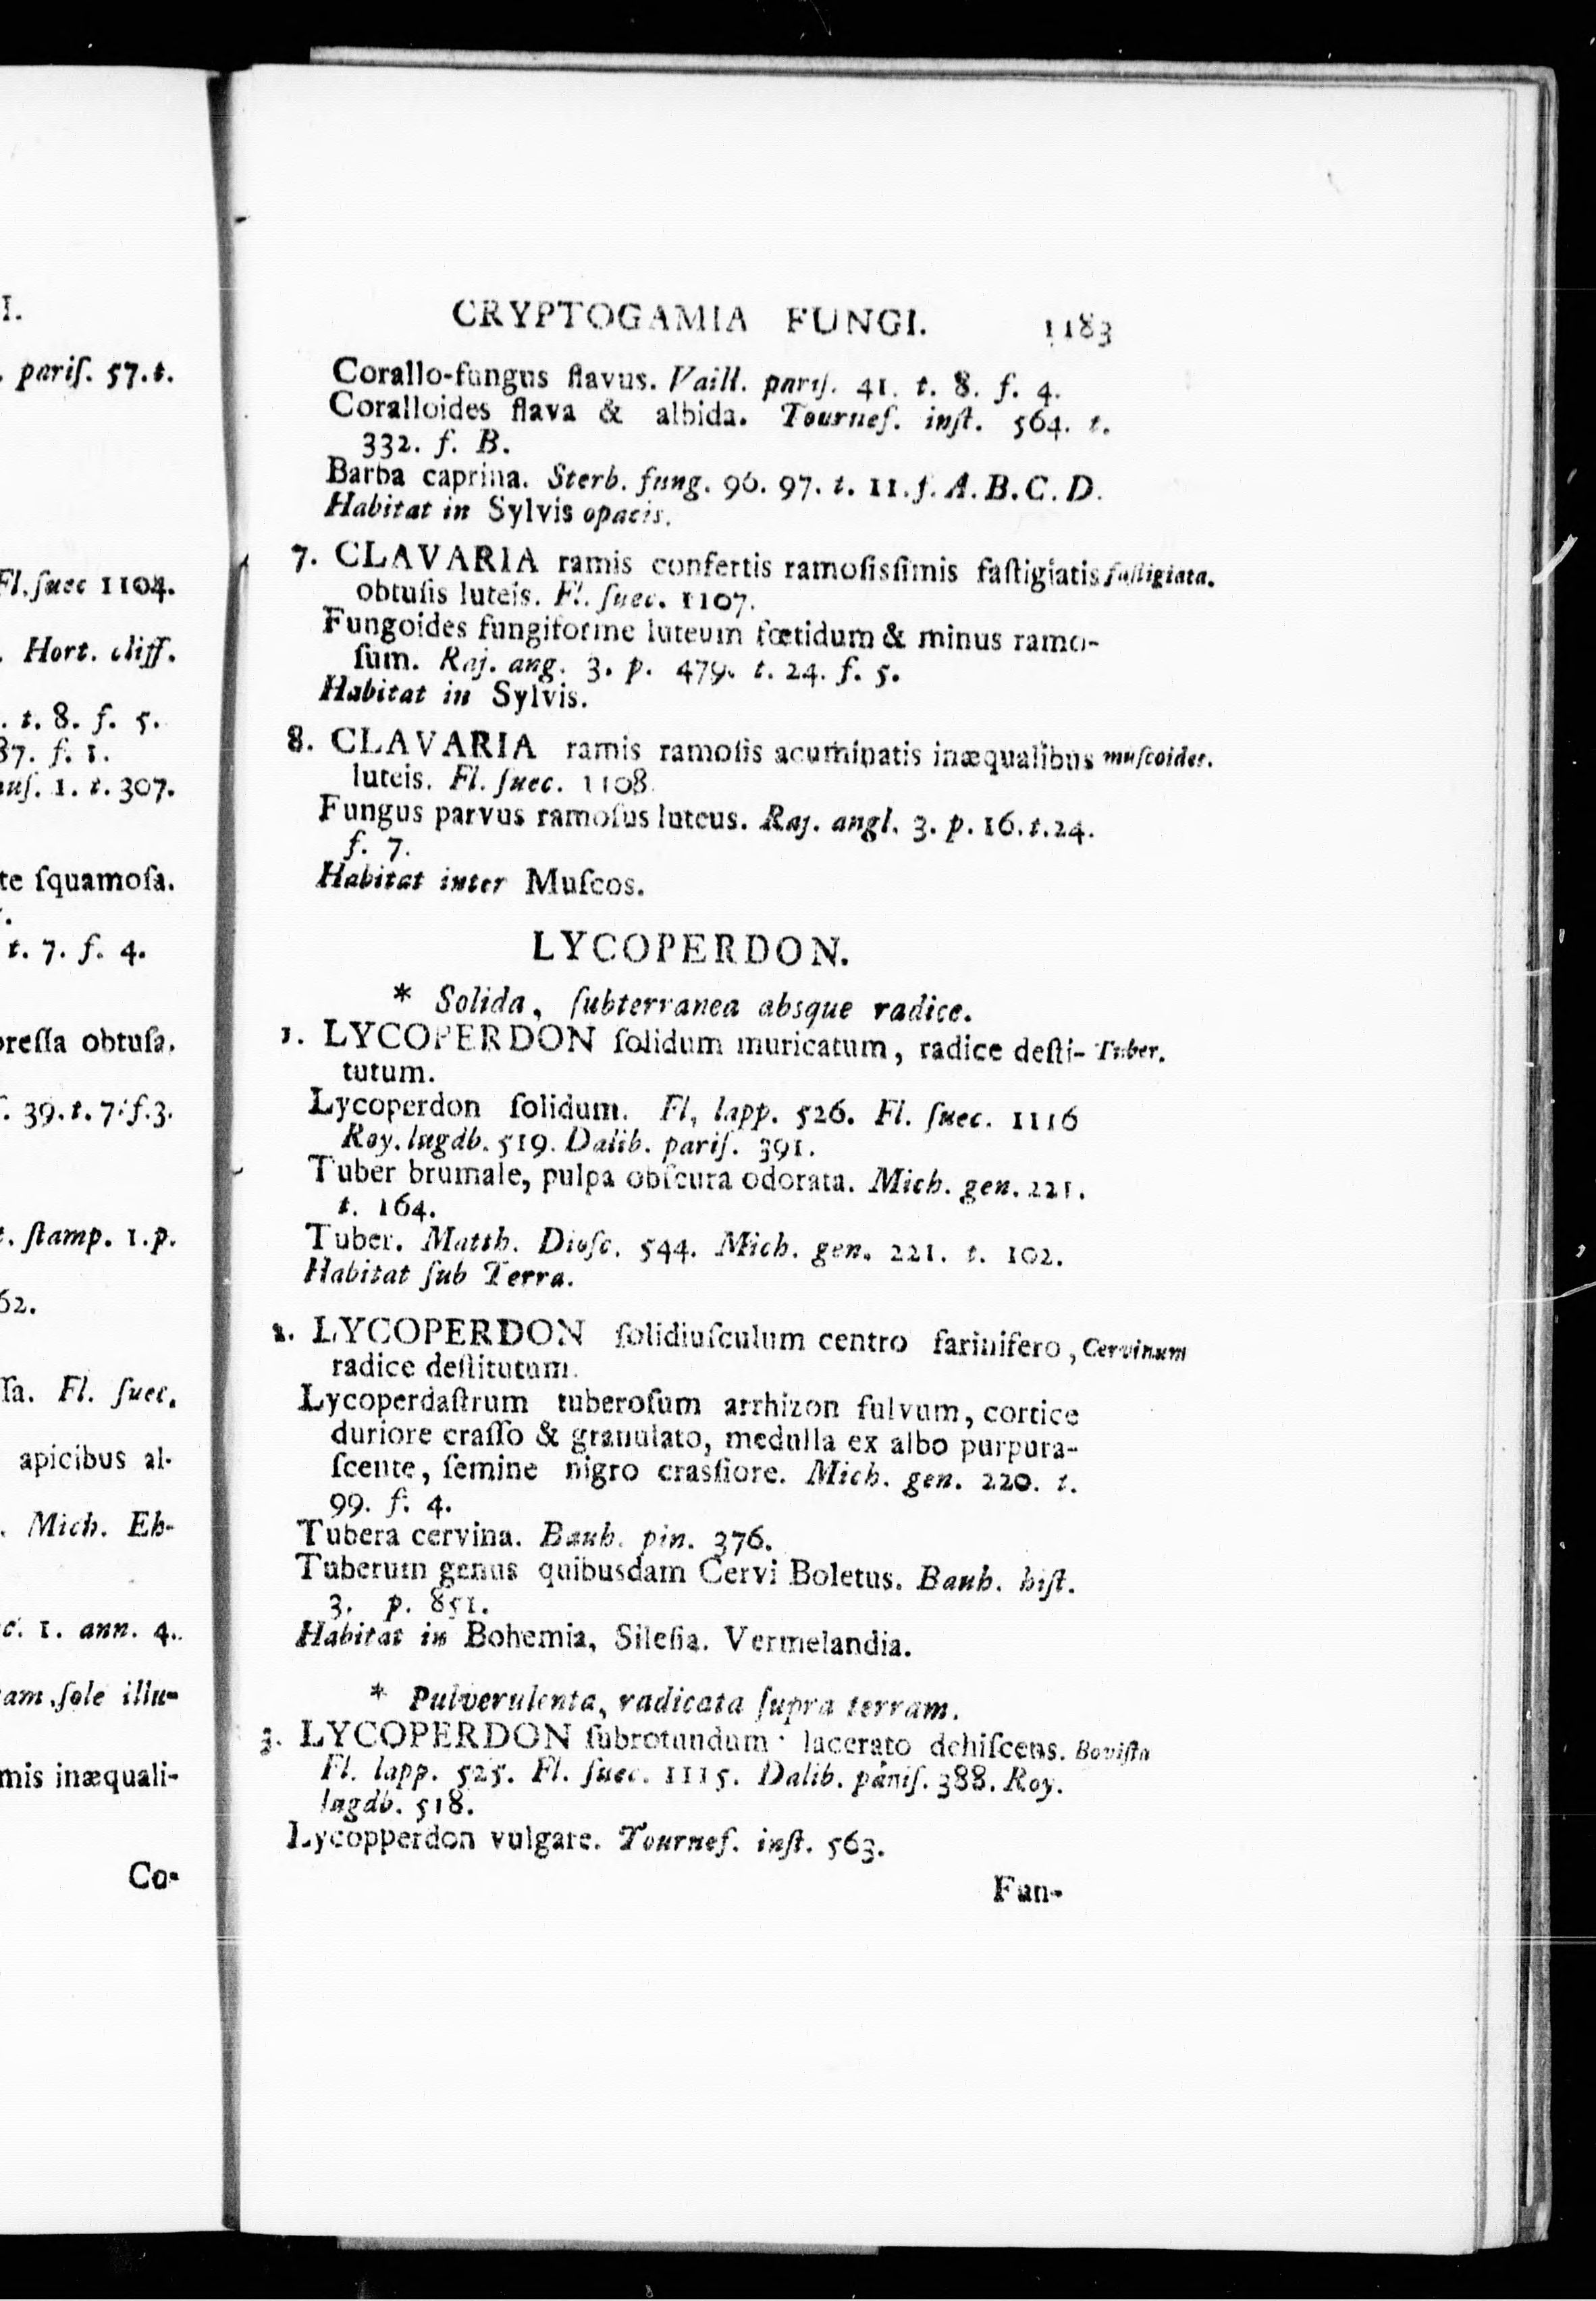 I.
. pariſ. 57.t.
Fl.ſuec 1104.
. Hort. cliff.
. t. 8. f. 5.
87. f. 1.
nuſ. 1. t. 307.
te ſquamoſa.
t. 7. f. 4.
preſſa obtuſa.
39.t. 7.f.3.
t. ſtamp. 1.p.
62.
ſa. Fl. ſuec.
apicibus al-
. Mich. Eh-
c. 1. ann. 4.
am ſole illu-
mis inæquali-
Co-
CRYPTOGAMIA FUNGI. 1183
Corallo-fungus flavus. Vaill. pariſ. 41. t. 8. f. 4.
Coralloides flava & albida. Tournef. inſt. 564. t.
332. f. B.
Barba caprina. Sterb. fung. 96. 97. t. 11. f. A. B. C. D.
Habitat in Sylvis opacis.
7. CLAVARIA ramis confertis ramoſisſimis faſtigiatis faſtigiata.
obtuſis luteis. Fl. ſuec. 1107.
Fungoides fungiforme luteum fœtidum & minus ramo-
ſum. Raj. ang. 3. p. 479. t. 24. f. 5.
Habitat in Sylvis.
8. CLAVARIA ramis ramoſis acuminatis inæqualibus muſcoides.
luteis. Fl. ſuec. 1108.
Fungus parvus ramoſus luteus. Raj. angl. 3. p. 16. t. 24.
f. 7.
Habitat inter Muſcos.
LYCOPERDON.
* Solida, ſubterranea absque radice.
1. LYCOPERDON ſolidum muricatum, radice deſti- Tuber.
tutum.
Lycoperdon ſolidum. Fl, lapp. 526. Fl. ſuec. 1116
Roy. lugdb. 519. Dalib. pariſ. 391.
Tuber brumale, pulpa obſcura odorata. Mich. gen. 221.
t. 164.
Tuber. Matth. Dioſc. 544. Mich. gen. 221. t. 102.
Habitat ſub Terra.
2. LYCOPERDON ſolidiuſculum centro farinifero, Cervinum
radice deſtitutum.
Lycoperdaſtrum tuberoſum arrhizon fulvum, cortice
duriore craſſo & granulato, medulla ex albo purpura-
ſcente, ſemine nigro crasſiore. Mich. gen. 220. t.
99. f. 4.
Tubera cervina. Bauh. pin. 376.
Tuberum genus quibusdam Cervi Boletus. Bauh. hiſt.
3. p. 851.
Habitat in Bohemia, Sileſia. Vermelandia.
* Pulverulenta, radicata ſupra terram.
3. LYCOPERDON ſubrotundum lacerato dehiſcens. Boviſta
Fl. lapp. 525. Fl. ſuec. 1115. Dalib. pariſ. 388. Roy.
lugdb. 518.
Lycopperdon vulgare. Tournef. inſt. 563.
Fun-